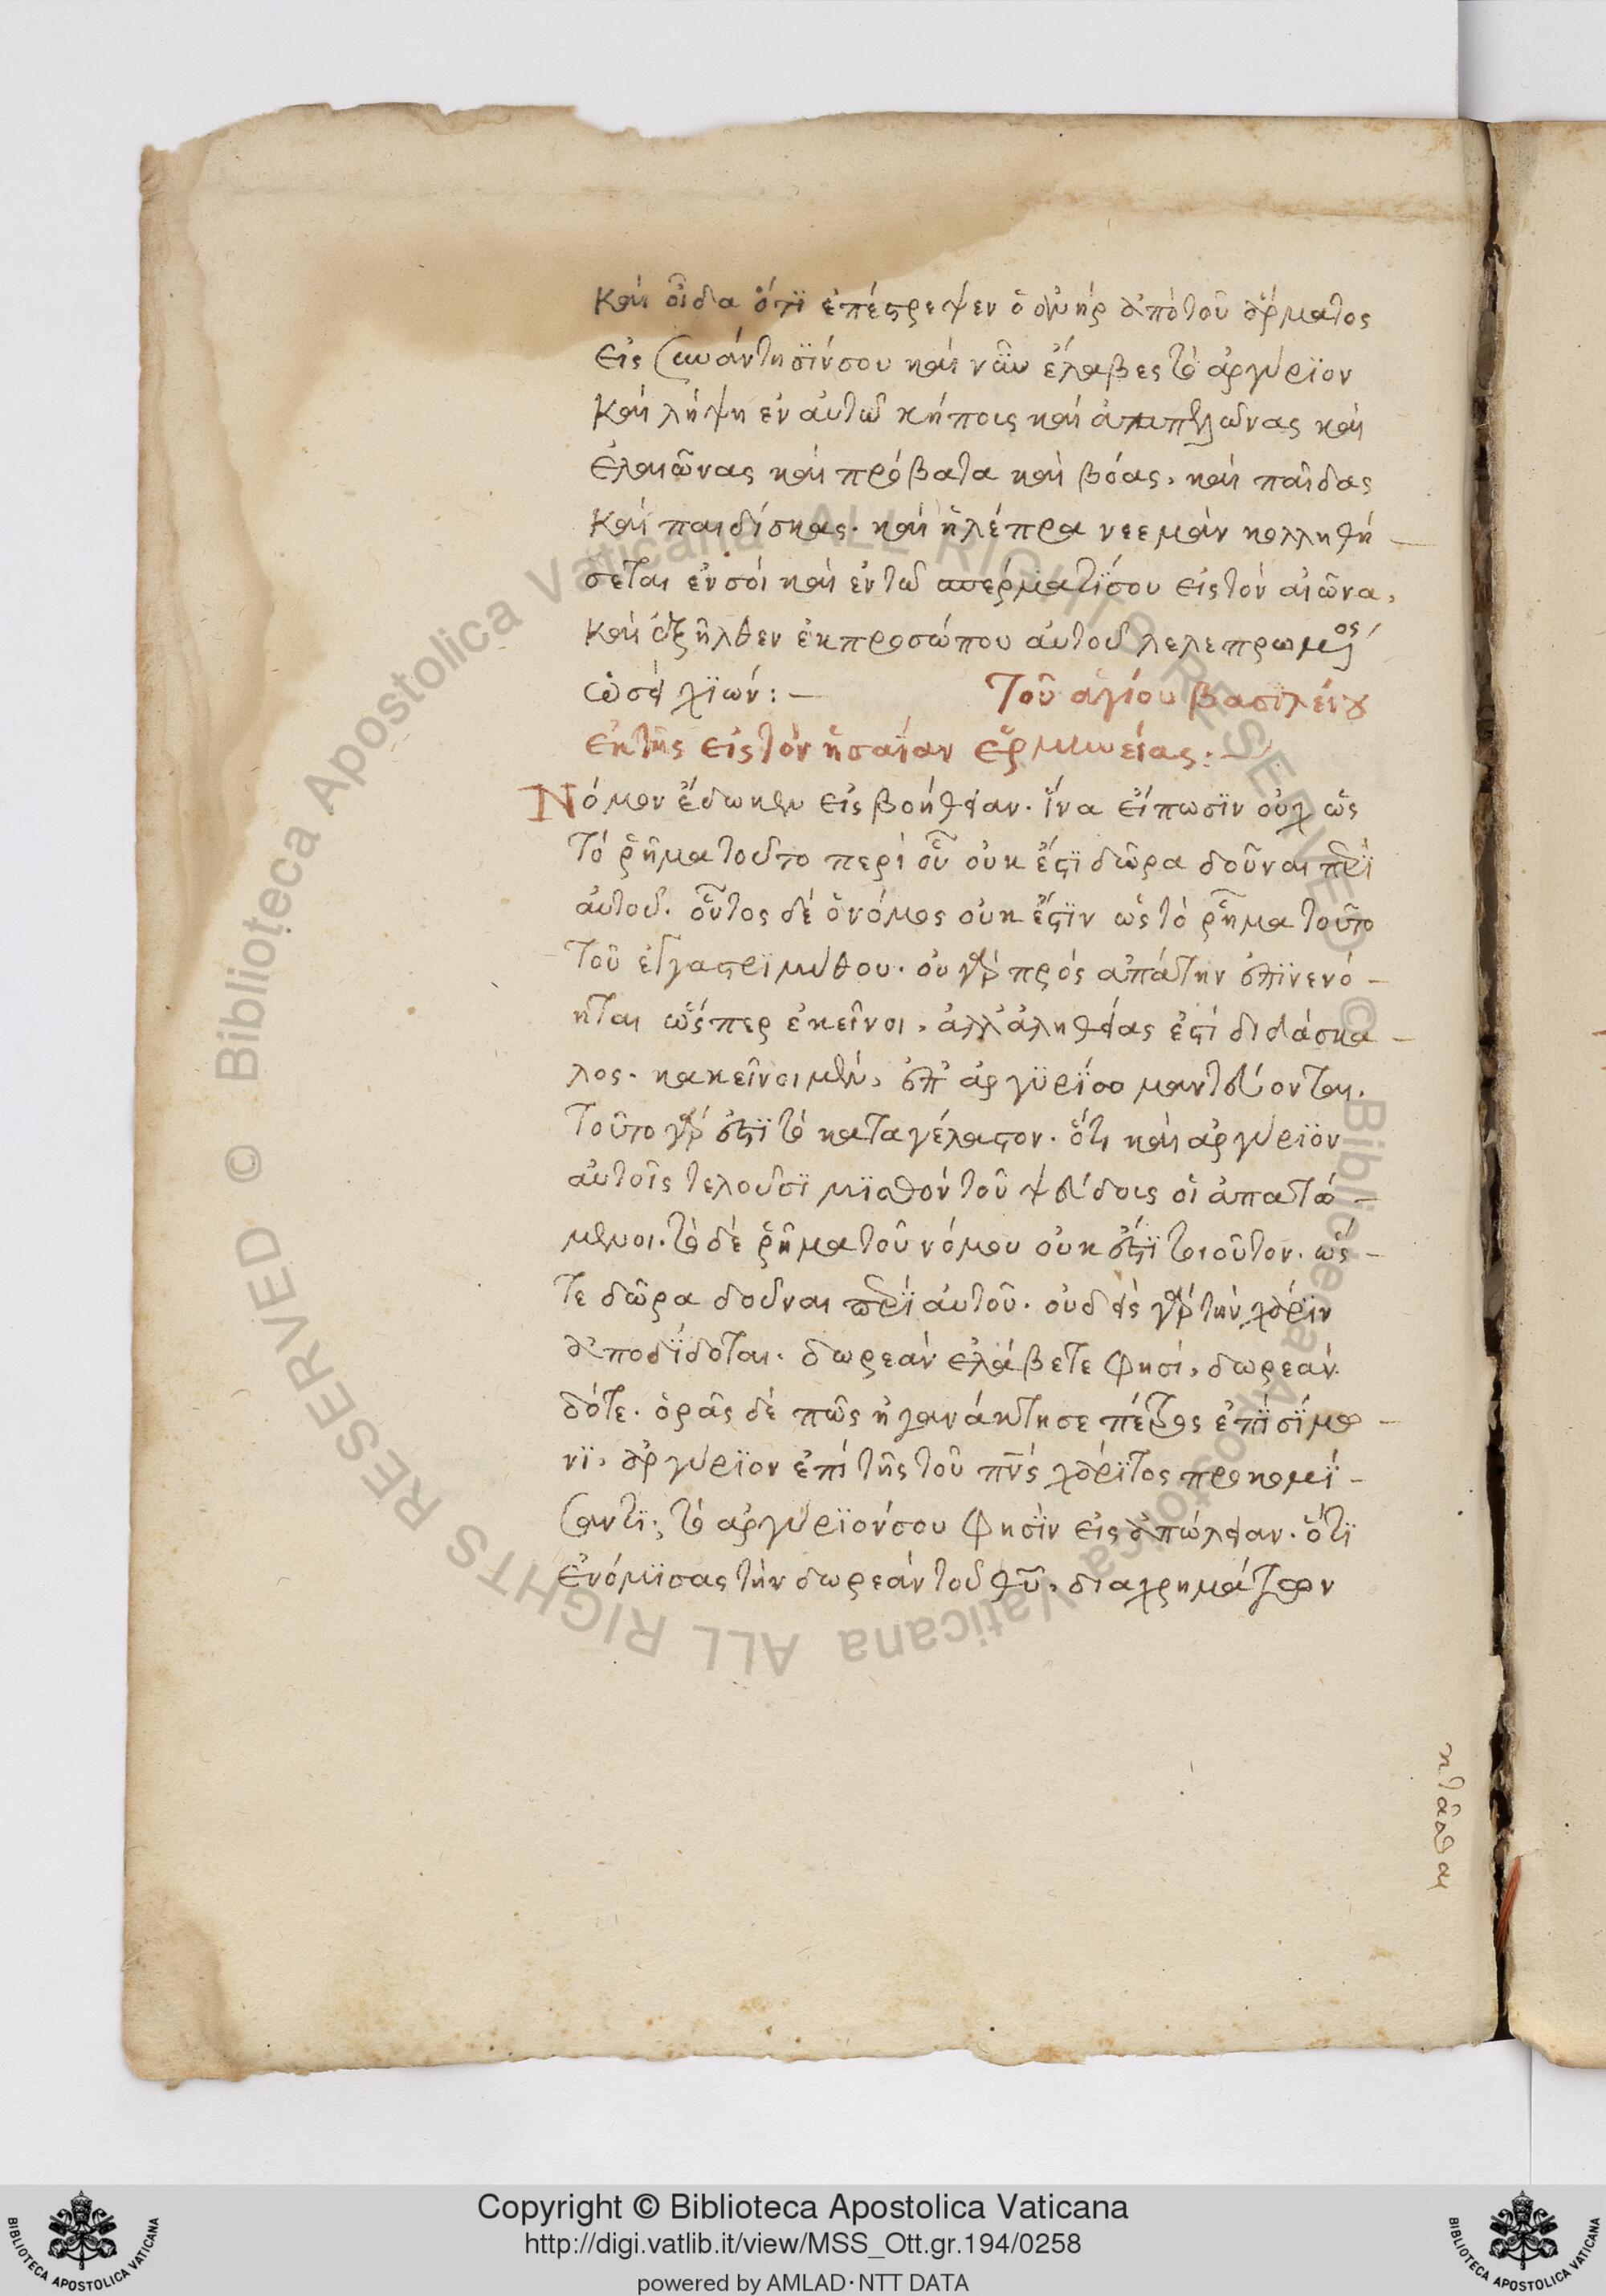 καὶ οἶδα ὅτι ἐπέστρεψεν ὁ ἀνὴρ ἀπὸ τοῦ ἅρματος
εἰς συνάντησίν σου καὶ νῦν ἔλαβες τὸ ἀργύριον
καὶ λήψη ἐν αὐτῶ κήποις καὶ ἀμπελῶνας καὶ
ἐλαιῶνας καὶ πρόβατα καὶ βόας, καὶ παῖδας
καὶ παιδίσκας· καὶ ἡ λέπρα νεεμὰν κολληθή-
σεται ἐν σοὶ καὶ ἐν τῶ σπέρματί σου εἰς τὸν αἰῶνα,
καὶ ἐξῆλθεν ἐκ προσώπου αὐτοῦ λελεπρωμος
ὡσεὶ χϊών: –
Τοῦ ἁγίου βασιλείου
ἐκ τῆς εἰς τὸν ἡσαΐαν ἑρμηνείας: –
Νόμον ἔδωκεν εἰς βοήθειαν· ἵνα εἴπωσϊν οὐχ ὡς
τὸ ῥῆμα τοῦτο περὶ οὗ οὐκ ἔστϊ δῶρα δοῦναι περὶ
αὐτοῦ. οὗτος δὲ ὁ νόμος οὐκ ἔστϊν ὡς τὸ ῥῆμα τοῦτο
τοῦ ἐγγαστριμύθου· οὐ γὰρ πρὸς ἀπάτην ἐπινενό-
ηται ὥσπερ ἐκεῖνοι, ἀλλ' ἀληθείας ἐστὶ διδάσκα-
λος· κακεῖνοι μὲν, ἐπ' ἀργυρίω μαντεύονται.
Τοῦτο γάρ ἐστι τὸ καταγέλαστον· ὅτι καὶ ἀργύριον
αὐτοῖς τελοῦσϊ μϊσθὸν τοῦ ψεύδους οἱ ἀπατώ-
μενοι. τὸ δὲ ῥῆμα τοῦ νόμου οὐκ ἔστι τοιοῦτον· ὥσ-
τε δῶρα δοῦναι περὶ αὐτοῦ. οὐδεὶς γὰρ τὴν χάριν
ἀποδίδοται. δωρεὰν ἐλάβετε φησὶ, δωρεὰν
δότε. ὁρᾶς δὲ πῶς ἠγανάκτησε πέτρος ἐπὶ σίμω-
νϊ, ἀργύριον ἐπὶ τῆς τοῦ πνς χάριτος προκομί-
σαντϊ; τὸ ἀργύριόν σου φησὶν εἰς ἀπώλειαν. ὅτϊ
ἐνόμισας τὴν δωρεὰν τοῦ θῦ, διαχρημάτων
κτᾶσθαι
Copyright © Biblioteca Apostolica Vaticana
http://digi.vatlib.it/view/MSS_Ott.gr.194/0258
powered by AMLAD·NTT DATA